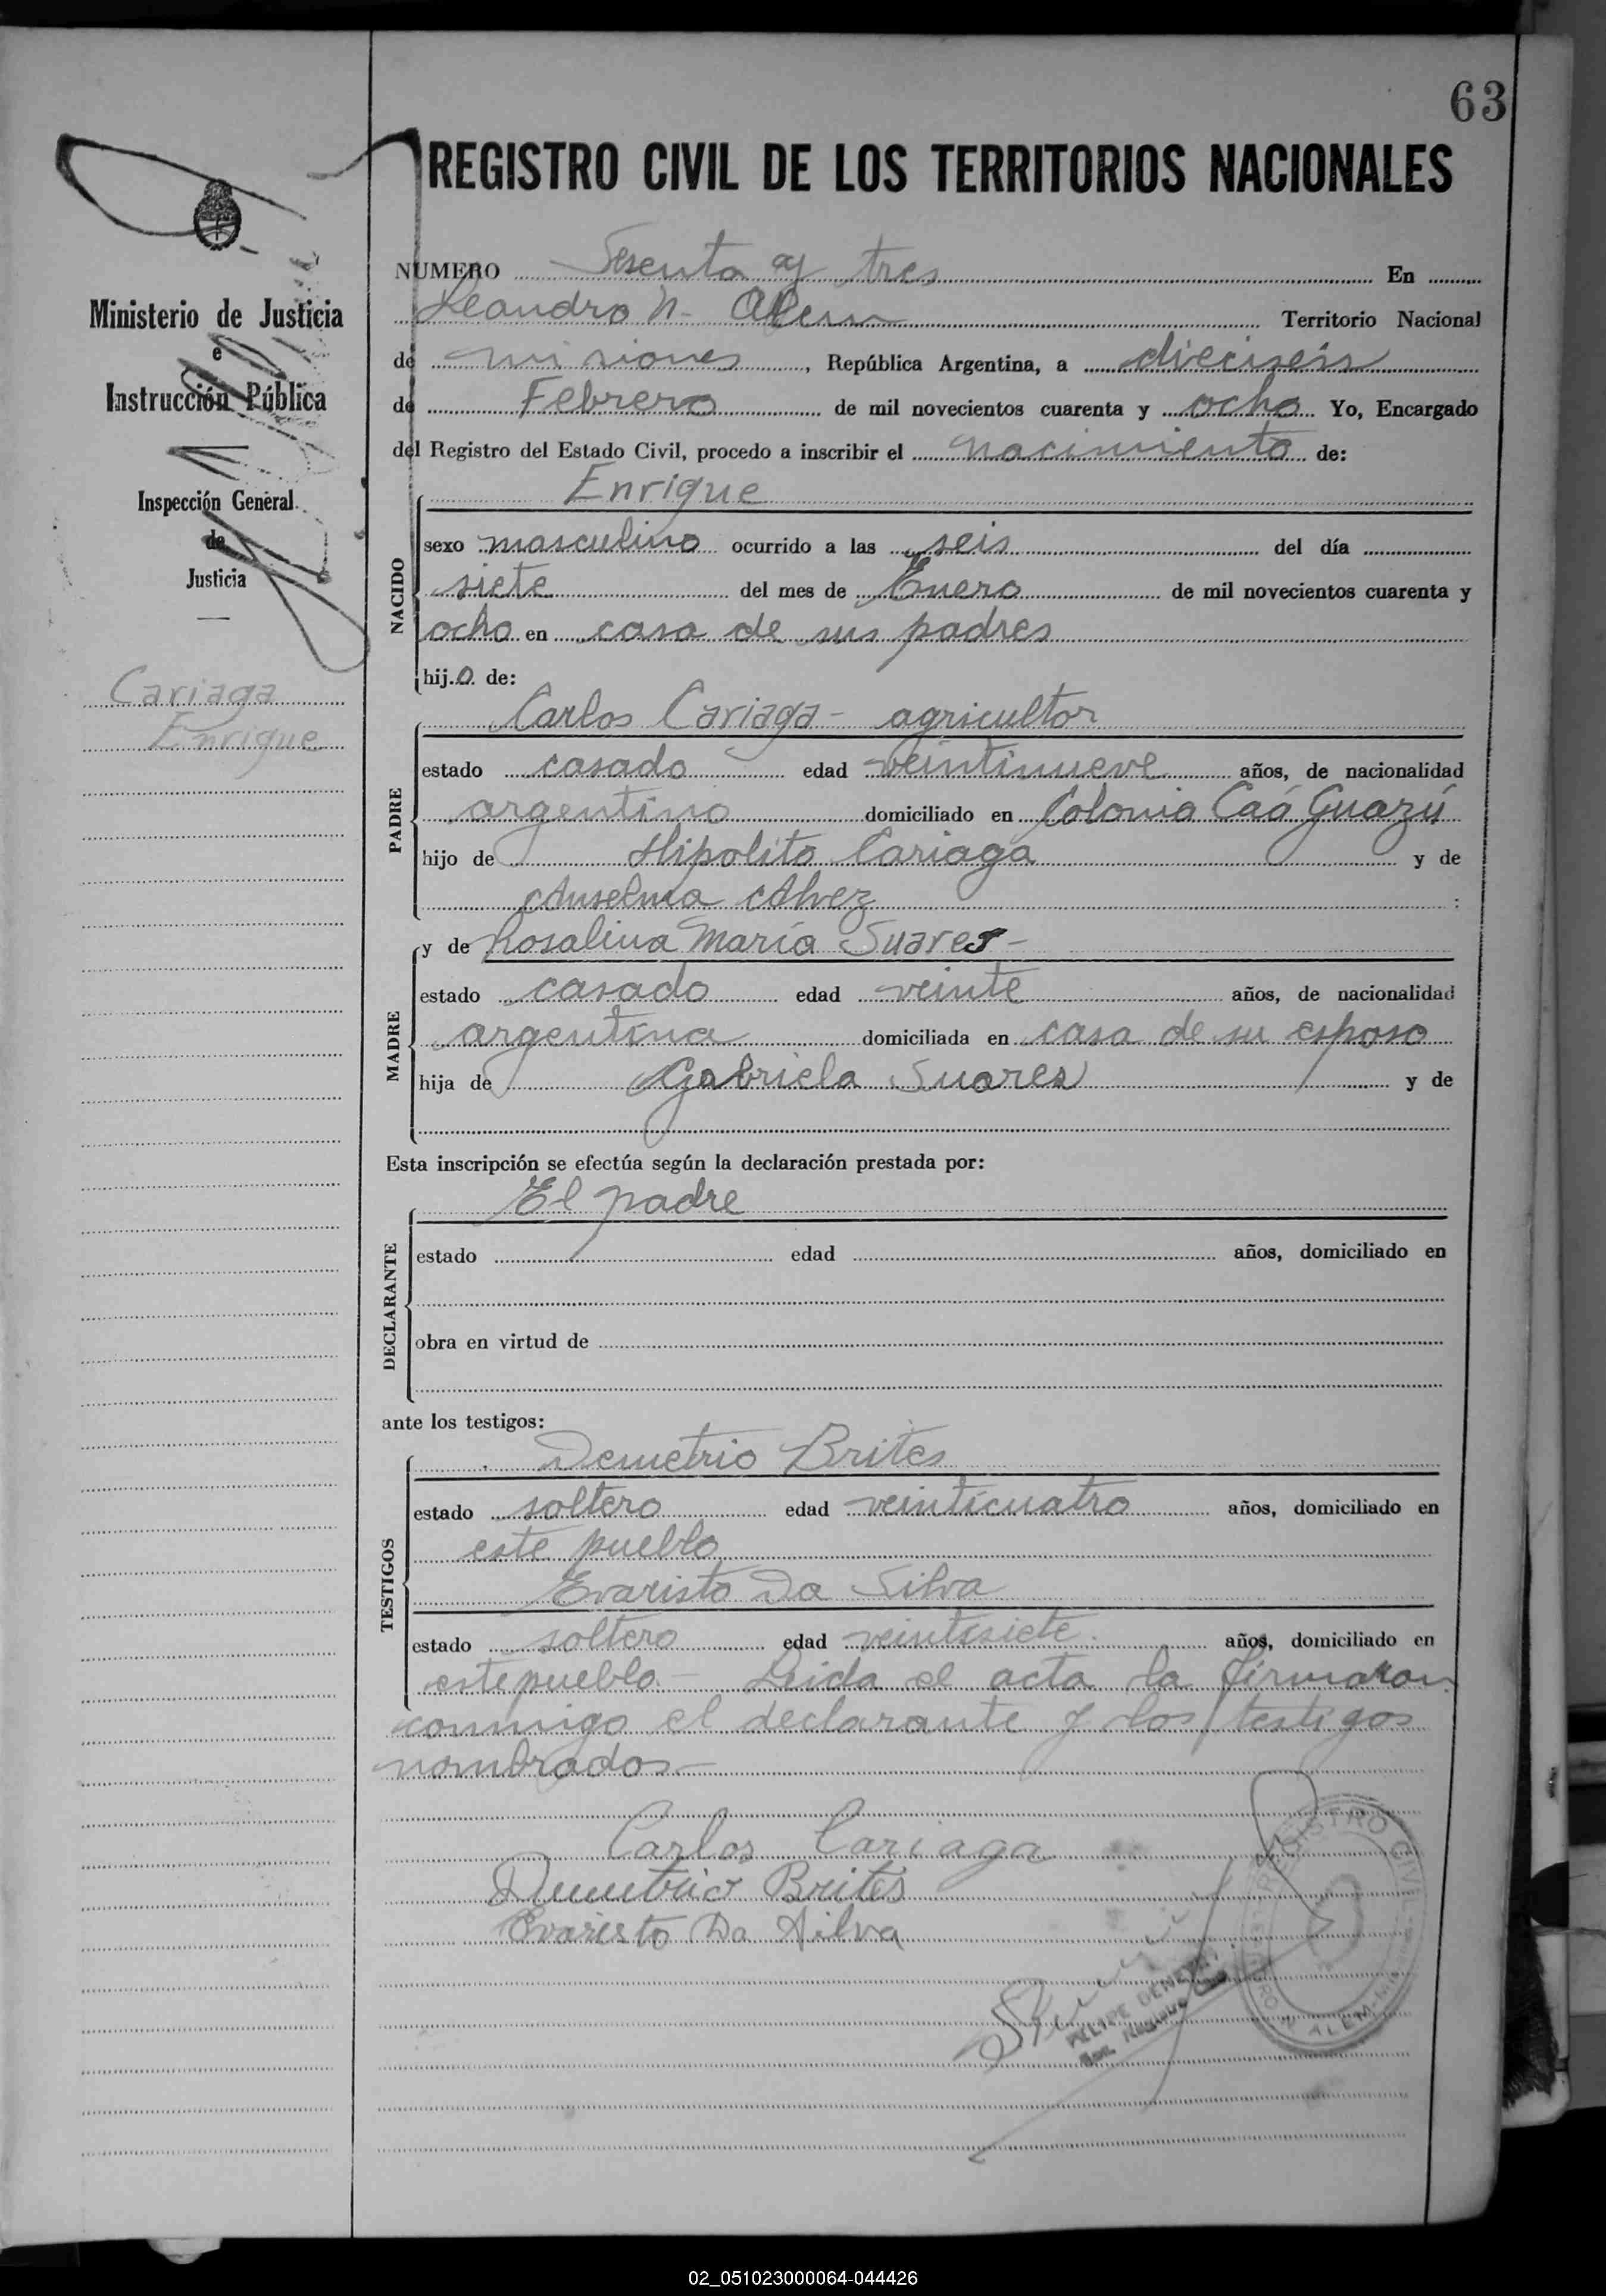 63
REGISTRO CIVIL DE LOS TERRITORIOS NACIONALES
Ministerio de Justicia
e
Instrucción Pública
Inspección General
de
Justicia
Cariaga
Enrique
NUMERO Sesenta y tres En
Leandro N. Alem Territorio Nacional
de misiones, República Argentina, a dieciseis
de Febrero de mil novecientos cuarenta y ocho Yo, Encargado
del Registro del Estado Civil, procedo a inscribir el nacimiento de:
NACIDO
Enrique
sexo masculino ocurrido a las seis del día
siete del mes de Enero de mil novecientos cuarenta y
ocho en casa de sus padres
hijo de:
PADRE
Carlos Cariaga - agricultor
estado casado edad veintinueve años, de nacionalidad
argentino domiciliado en Colonia Caá Guazú
hijo de Hipolito Cariaga y de
Anselma Alvez :
MADRE
y de Rosalina María Suares -
estado casado edad veinte años, de nacionalidad
argentina domiciliada en casa de su esposo
hija de Gabriela Suares y de
Esta inscripción se efectúa según la declaración prestada por:
El padre
DECLARANTE
estado edad años, domiciliado en
obra en virtud de
ante los testigos:
Demetrio Brites
TESTIGOS
estado soltero edad veinticuatro años, domiciliado en
este pueblo
Evaristo Da Silva
estado soltero edad veintisiete años, domiciliado en
este pueblo - Leida el acta la firmaron
conmigo el declarante y los testigos
nombrados -
Carlos Cariaga
Demetrio Brites
Evaristo Da Silva
REGISTRO CIVIL
ALEM
FELIPE
02_051023000064-044426